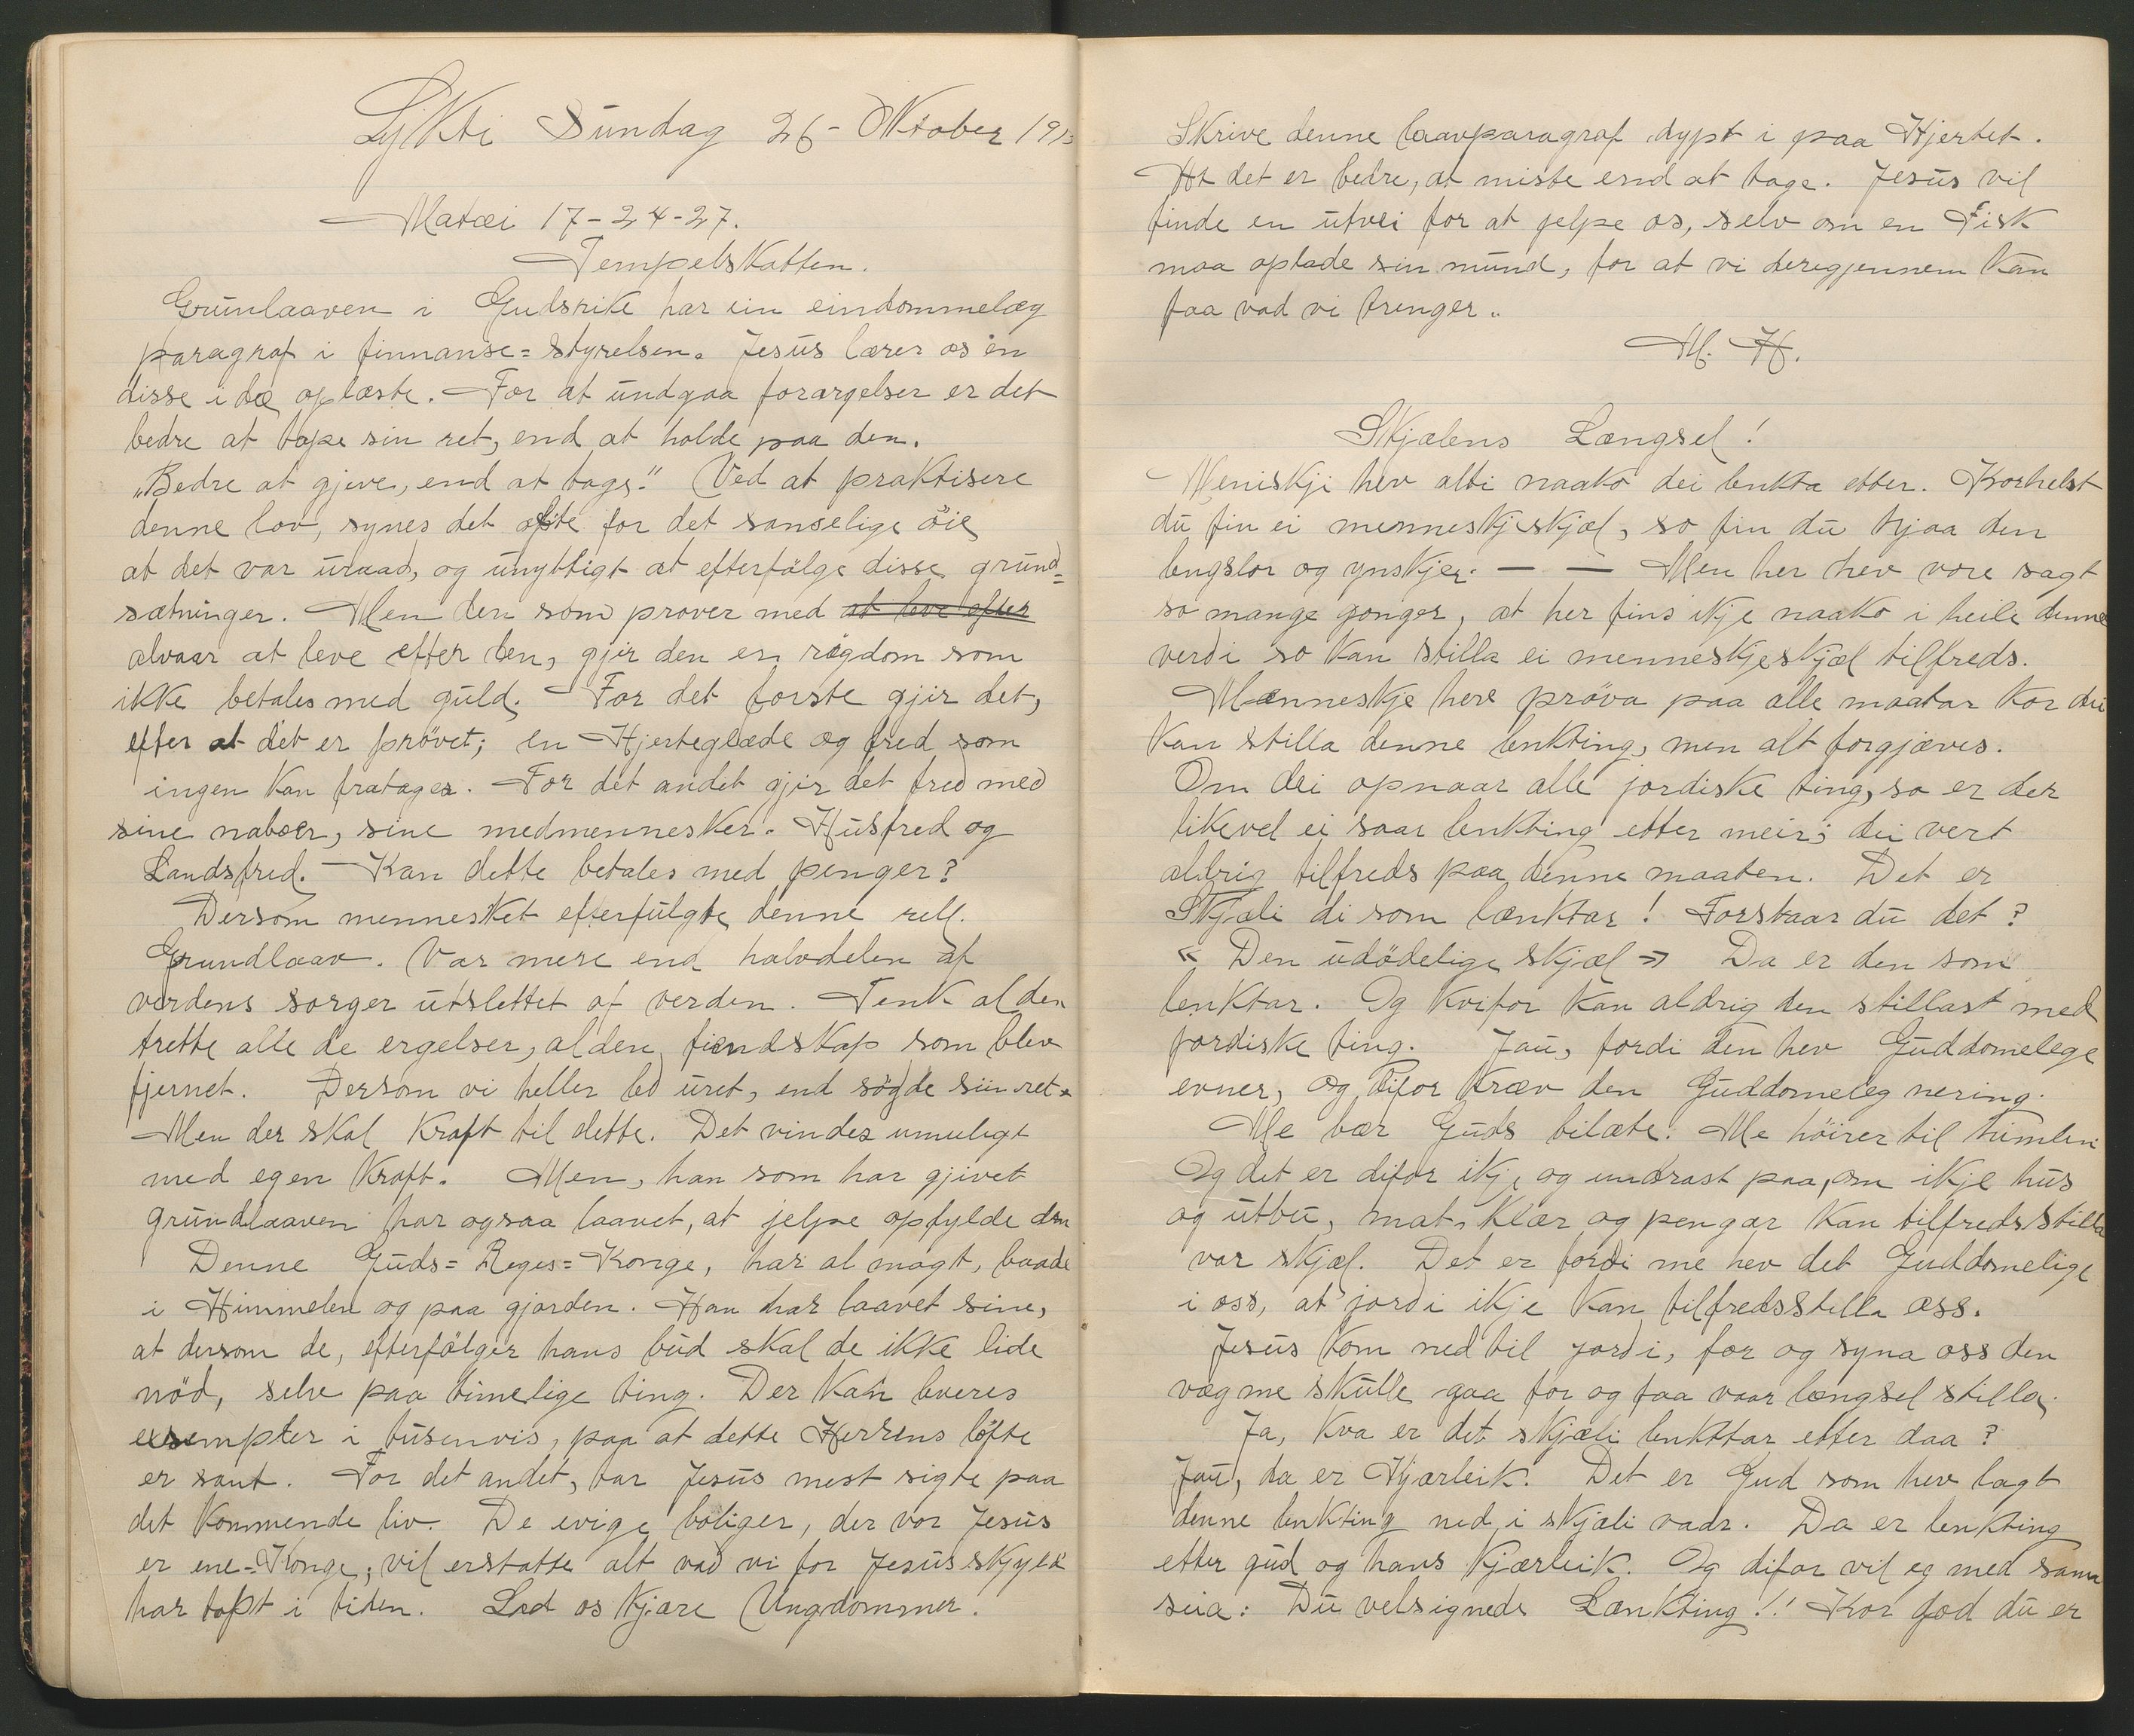 Lykti Sundag 26 - Oktober 191
Matæi 17-24-27.
Tempelskatten.
Grunlaaven i Gudsrike har ein eindommelæg
paragraf i finnanse=styrelsen. Jesus lærer os en
disse i det oplæste. For at undgaa forargelser er det
bedre at tape sin ret, end at holde paa den.
„Bedre at gjeve, end at tage." Ved at praktisere
denne lov, synes det ofte for det sanselige öie
at det var uraad, og unyttigt at efterfölge disse grund=
sætninger. Men den som prøver med at leve efter
alvaar at leve efter den, gjir den en rigdom som
ikke betales med guld. For det forste gjir det,
efter at det er prövet; en Hjerteglæde og fred som
ingen kan fratages. For det andet gjir det fred med
sine naboer, sine medmennesker. Husfred og
Landsfred. - Kan dette betales med penger?
Dersom mennesket efterfulgte denne rell.
Grundlaav. Var mere end halvdelen af
verdens sorger utslettet af verden. Tenk al den
trette alle de ergelser, al den fiendskap som blev
fjernet. Dersom vi heller led uret, end sögde sin ret.
Men der skal Kraft til dette. Det vindes umuligt
med egen Kraft. Men, han som har gjivet
grundlaaven har ogsaa laavet, at jelpe opfylde den
Denne Guds=Reges=Konge, har al magt, baade
i Himmelen og paa gjorden. Han har laavet sine,
at dersom de, efterfölger hans bud skal de ikke lide
nöd, selve paa timelige ting. Der kan leveres
exsempler i tusenvis, paa at dette Herrens löfte
er sant. For det andet, var Jesus mest sigte paa
det kommende liv. De evige boliger, der vor Jesus
er ene=Konge, vil erstatte alt vad vi for Jesus skyld
har tapt i tiden. Lad os kjære Ungdommer.
Skrive denne laavparagraf dypt i paa Hjertet.
At det er bedre, at miste end at tage. Jesus vil
finde en utvei for at jelpe os, selv om en Fisk
maa oplade sin mund, for at vi deregjennem kan
faa vad vi trenger.
M. H.
Skjælens Længsel!
Meniskji hev alti naako dei lenkta etter. Korhelst
du fin ei menneskjeskjæl, so fin du hjaa den
lengslor og ynskjer. — — Men her hev vore sagt
so mange gonger, at her fins ikje naako i heile denne
verdi so kan stilla ei menneskjeskjæl tilfreds.
Menneskje heve pröva paa alle maatar kor dei
kan stilla denne lenkting, men alt forgjæves.
Om dei opnaar alle jordiske ting, so er der
likevel ei saar lenkting etter meir; dei vert
aldrig tilfreds paa denne maaten. Det er
Skjæli di som lænktar! Forstaar du det?
« Den udödelige skjæl » Da er den som
lenktar. Og kvifor kan aldrig den stillast med
jordiske ting. Jau, fordi den hev Guddomelege
evner, og difor kræv den Guddomeleg nering.
Me bær Guds bilæte. Me höirer til himlen
Og det er difor ikje og undrast paa, om ikje hus
og utbu, mat, klær og pengar kan tilfredsstilla
vor skjæl. Det er fordi me hev det Guddomelige
i oss, at jordi ikje kan tilfredsstilla oss.
Jesus kom ned til jordi, for og syna oss den
væg me skulle gaa for og faa vaar længsel stilla.
Ja, kva er det skjæli lenkttar etter daa?
Jau, da er Kjærleik. Det er Gud som hev lagt
denne lenkting ned i skjæli vaar. Da er lenkting
etter gud og hans kjærleik. Og difor vil eg med sama
seia: Du velsignede Lænkting!! Kor god du er